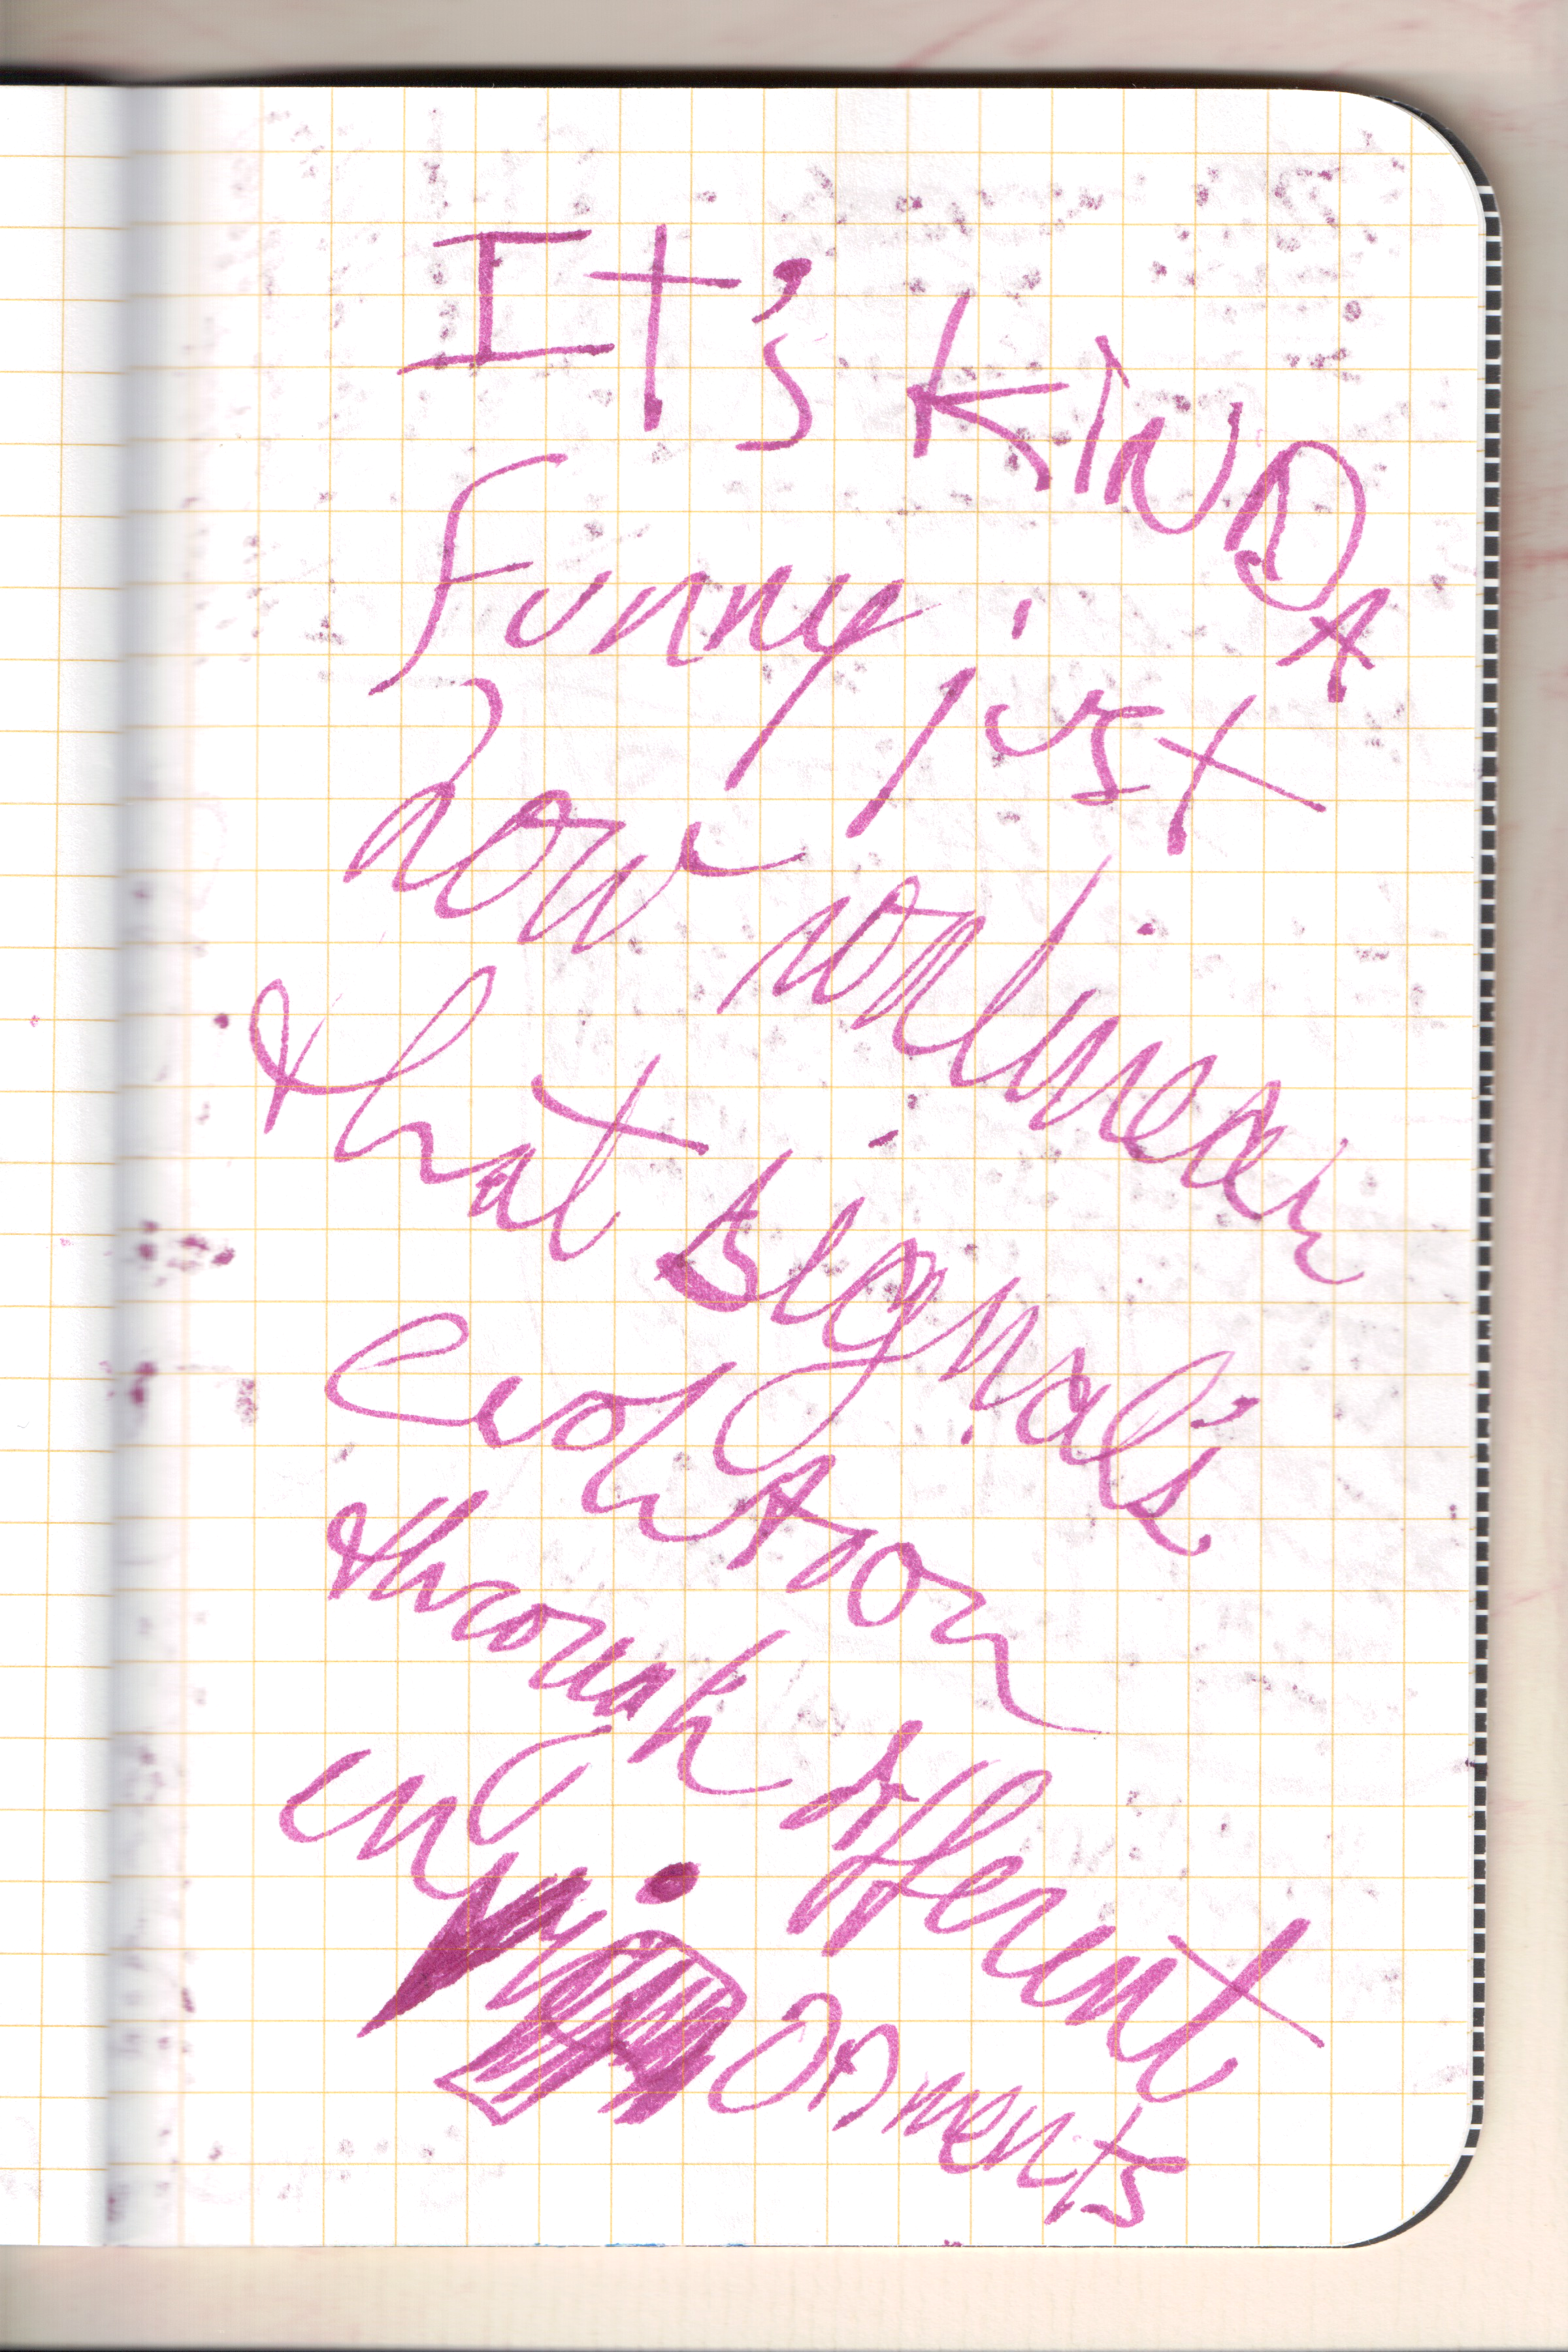 It's kinDA
funny just
how nonlinear
that signal's
evolution
through different
environments